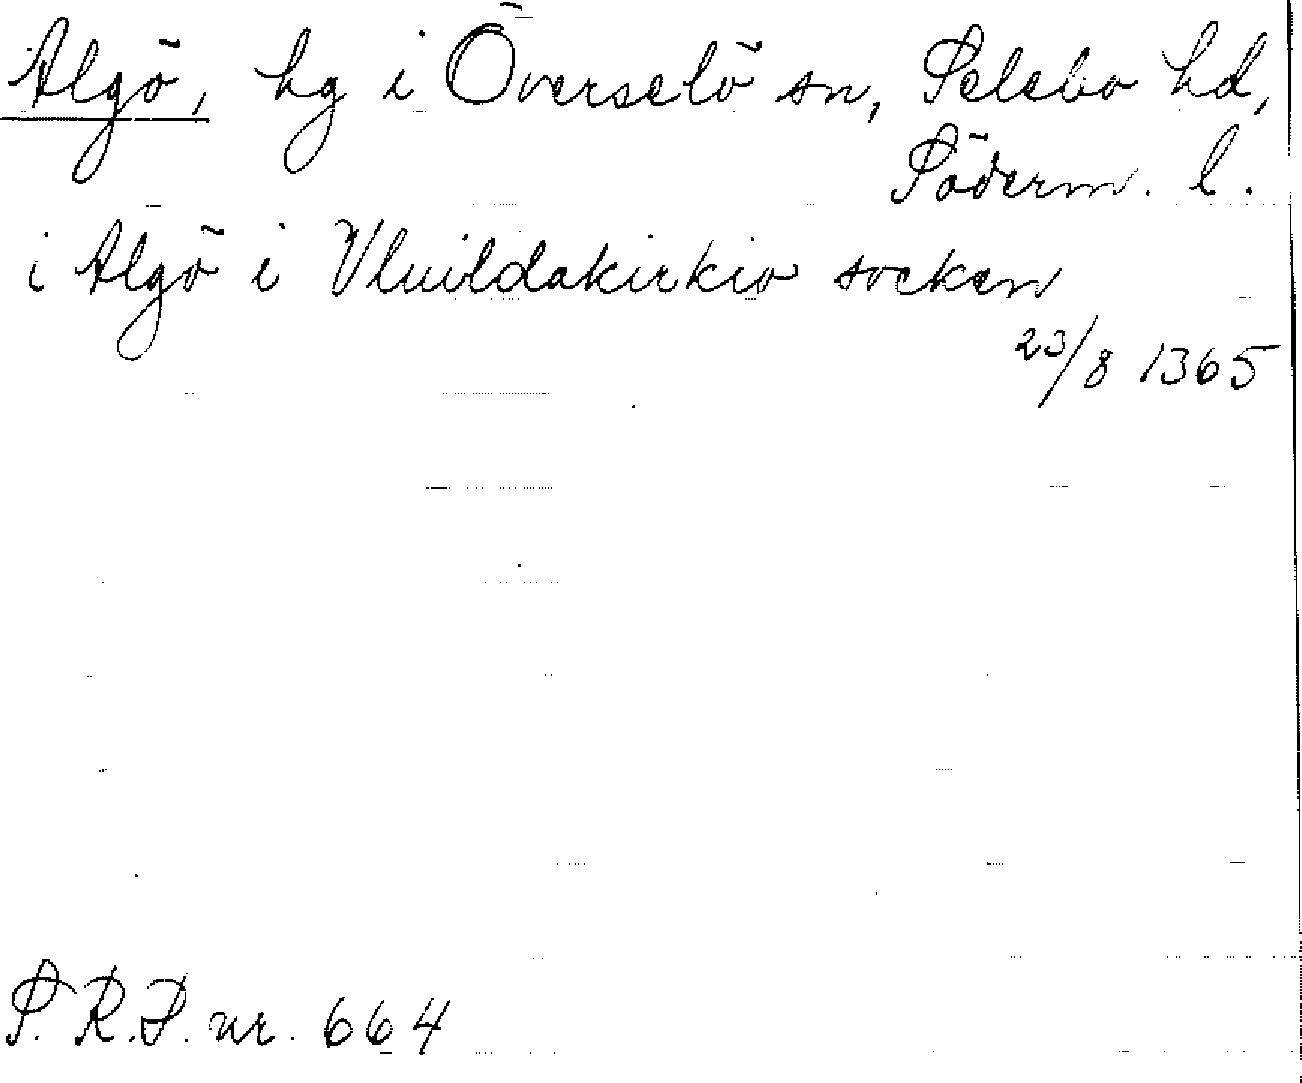 Algö, hg i Överselö sn, Selebo hd,
Söderm. l.
i Algö i Vluildakirkio socken
23/8 1365
S.R.P. nr. 664